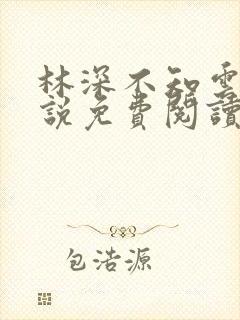 林深不知雲
說免費閱讀
包浩源